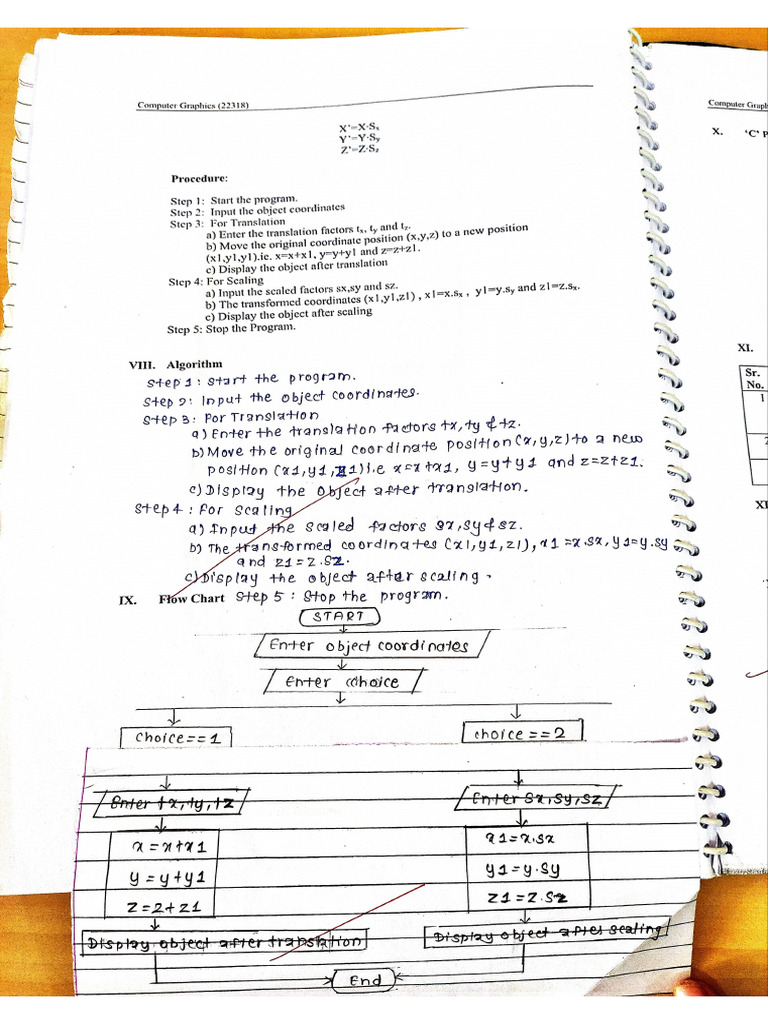 Computer Graphics (22318)
X'=X·Sx
Y'=Y·Sy
Z'=Z·Sz
Procedure:
Step 1: Start the program.
Step 2: Input the object coordinates
Step 3: For Translation
a) Enter the translation factors tx, ty and tz.
b) Move the original coordinate position (x,y,z) to a new position
(x1,y1,y1).ie. x=x+x1, y=y+y1 and z=z+z1.
c) Display the object after translation
Step 4: For Scaling
a) Input the scaled factors sx,sy and sz.
b) The transformed coordinates (x1,y1,z1) , x1=x.sx , y1=y.sy and z1=z.sx.
c) Display the object after scaling
Step 5: Stop the Program.
VIII. Algorithm
Step 1 : Start the program.
Step 2: Input the object coordinates.
Step 3: For Translation
a) Enter the translation factors tx, ty & tz.
b) Move the original coordinate position (x,y,z) to a new
position (x1,y1,z1) i.e x=x+x1, y=y+y1 and z=z+z1.
c) Display the object after translation.
Step 4 : For Scaling
a) Input the scaled factors sx,sy & sz.
b) The transformed coordinates (x1,y1,z1), x1=x.sx, y1=y.sy
and z1=z.sz.
c) Display the object after scaling.
IX. Flow Chart Step 5 : Stop the program.
START
Enter object coordinates
Enter choice
choice==1 choice==2
Enter tx, ty, tz Enter sx, sy, sz
x=x+x1 x1=x.sx
y=y+y1 y1=y.sy
z=2+z1 z1=z.sz
Display object after translation Display object after scaling
End
Computer Graph
X. 'C' P
XI.
Sr.
No.
1
2
XI